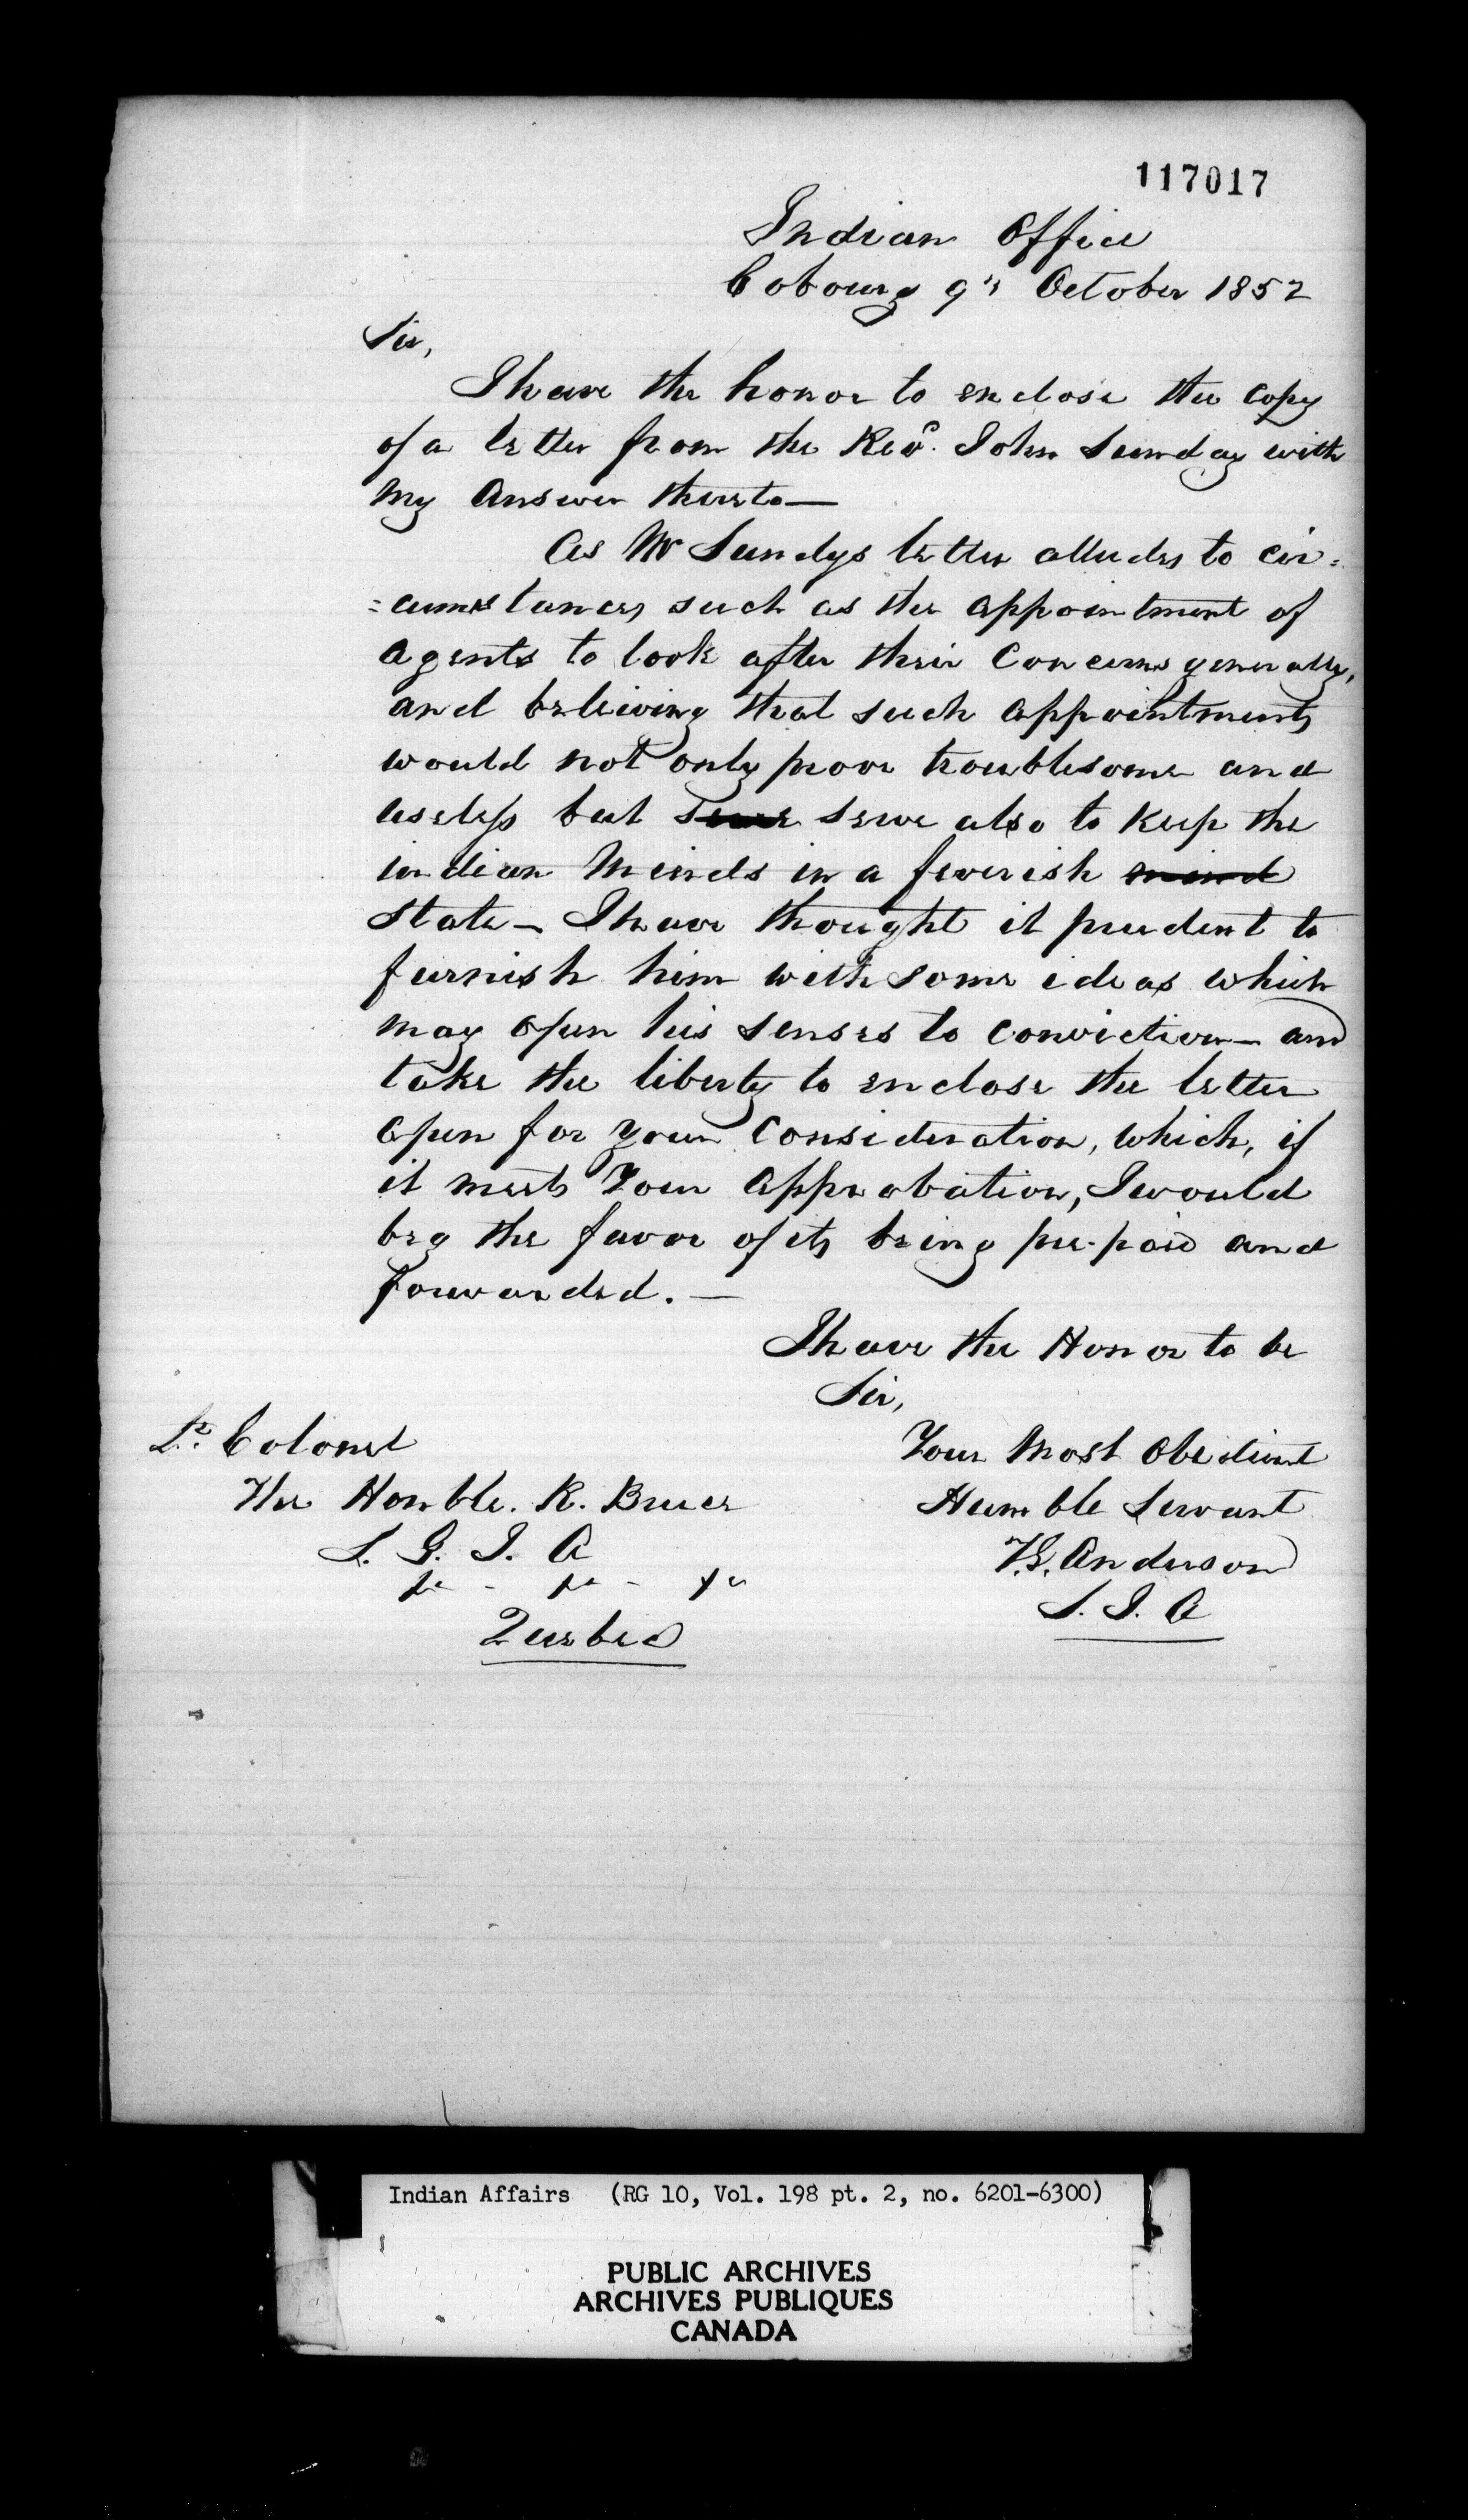 117017
Indian Office
Cobourg 9th October 1852
Sir,
I have the honor to enclose the copy
of a letter from the Revd. John Sunday with
my answer thereto—
As Mr Sundys letter alludes to cir=
=cumstances such as the appointment of
agents to look after their Concerns generally,
and beleiving that such appointments
would not only prove troublesome and
useless but serve serve also to keep the
indian minds in a feverish mind
state— I have thought it prudent to
furnish him with some ideas which
may open his senses to conviction— and
take the liberty to enclose the letter
open for your Consideration, which, if
it meets Your Approbation, I would
beg the favor of its being pre-paid and
forwarded. —
I have the Honor to be
Sir,
Your Most Obedient
Humble Servant
T.G. Anderson
S. I. A
Lt. Colonel
The Honble. R. Bruce
S. G. I. A
Quebec
Indian Affairs (RG 10, Vol. 198 pt. 2, no. 6201-6300)
PUBLIC ARCHIVES
ARCHIVES PUBLIQUES
CANADA